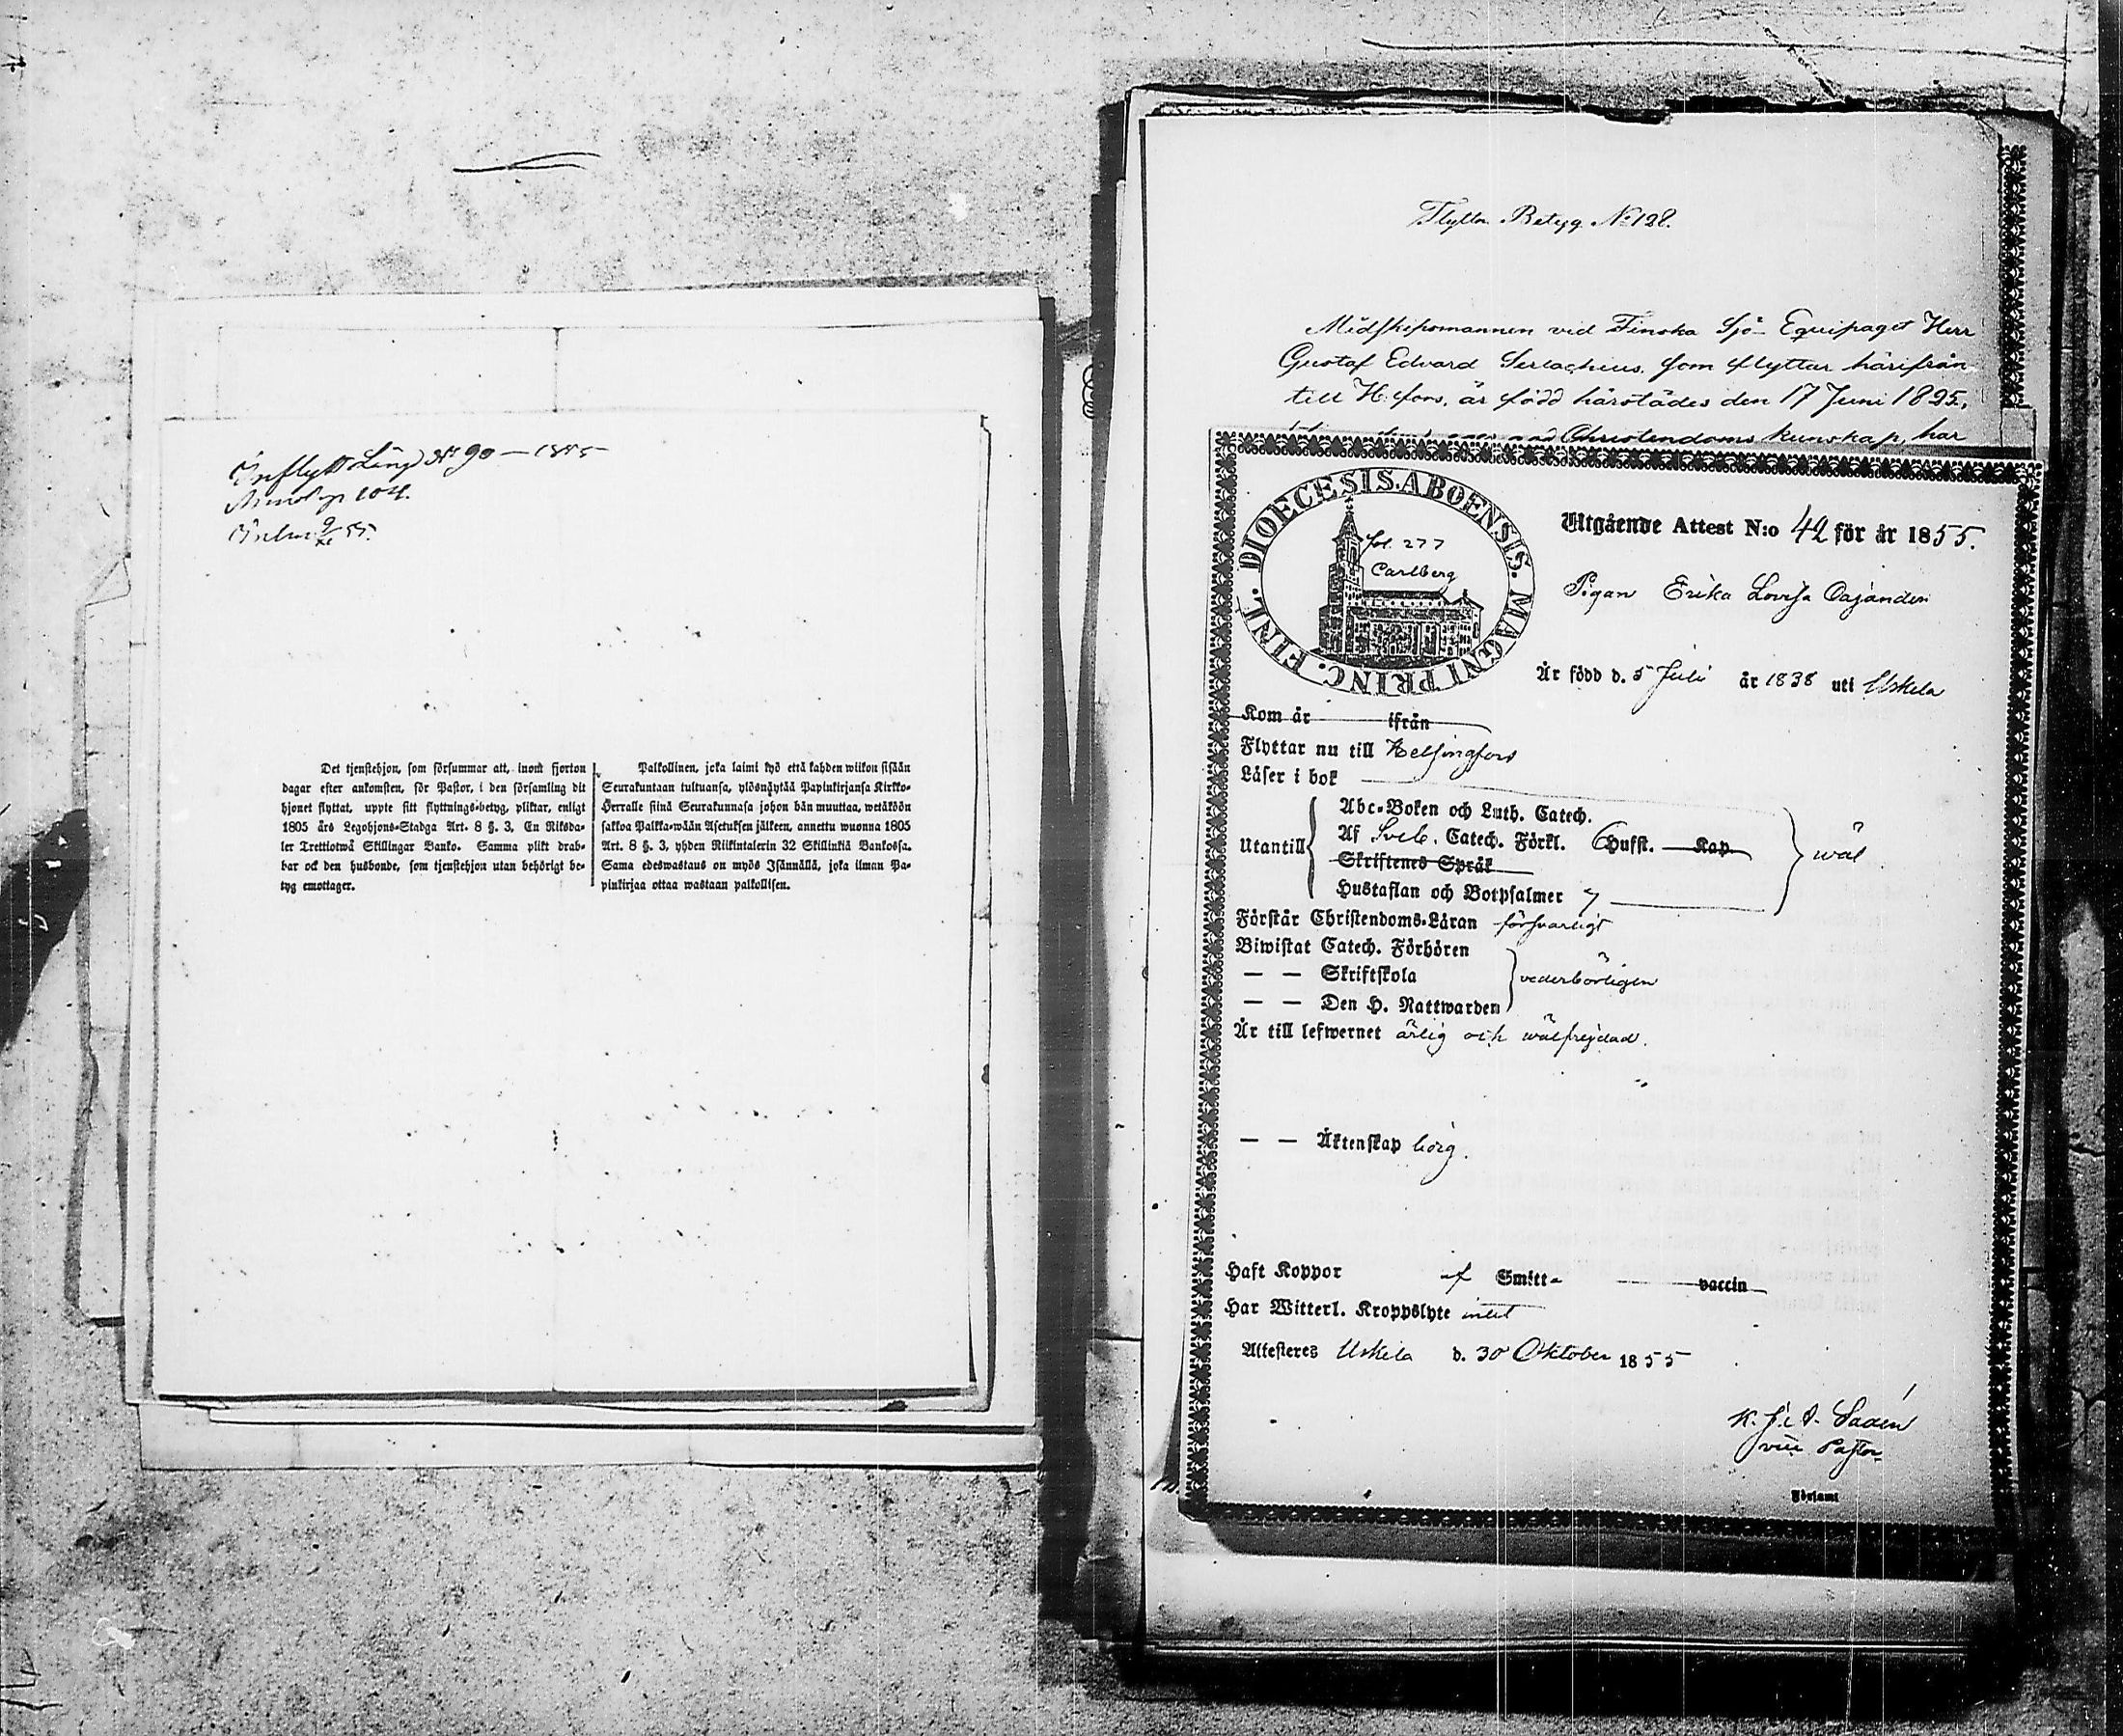 Inflytt Längd No 90 — 1855
104.
9/XI 55.
Det tjenstehjon, som försummar att, inom fjorton
dagar efter ankomsten, för Pastor, i den församling dit
hjonet flyttat, uppte sitt flyttnings-betyg, pliktar, enligt
1805 års Legohjons-Stadga Art. 8 §. 3, En Riksda-
ler Trettiotwå Skillingar Banko. Samma plikt drab-
bar ock den husbonde, som tjenstehjon utan behörigt be-
tyg emottager.
Palkollinen, joka laimi lyö että kahden wiikon sisään
Seurakuntaan tultuansa, ylösnäytää Papinkirjansa Kirkko-
Herralle siinä Seurakunnasa johon hän muuttaa, wetäköön
sakkoa Palkka-wään Asetuksen jälkeen, annettu wuonna 1805
Art. 8 §. 3, yhden Riikintalerin 32 Skillinkiä Bankossa.
Sama edeswastaus on myös Isännällä, joka ilman Pa-
pinkirjaa ottaa wastaan palkollisen.
Flytta Betyg No 128.
Midskepsmannen vid Finska Sjö-Equipaget Herr
Gustaf Edvard Serlachius, som flyttar härifrån
till H:fors, är född härstädes den 17 Juni 1825,
Christendoms kunskap, har
DIOECESIS. ABOENSIS. MAGNI PRINC. FINL.
fol. 277
Carlberg
Utgående Attest N:o 42 för år 1855.
Pigan Erika Lovisa Cajander
Är född d. 5 Juli år 1838 uti Uskela
Kom år ifrån
Flyttar nu till Helsingfors
Läser i bok
Utantill
Abc-Boken och Luth. Catech.
Af Sveb. Catech. Förkl. Hufst. Kap.
Skriftenes Språk
Hustaflan och Botpsalmer 7
wäl
Förstår Christendoms-Läran försvarligt
Biwistat Catech. Förhören
— — Skriftskola
— — Den H. Nattwarden
vederbörligen
Är till lefwernet ärlig och wälfrejdad.
— — Äktenskap ledig.
Haft Koppor af Smitt- vaccin
Har Witterl. Kroppslyte intet
Attesteres Uskela d. 30 Oktober 1855
vice Pastor
Förlamt